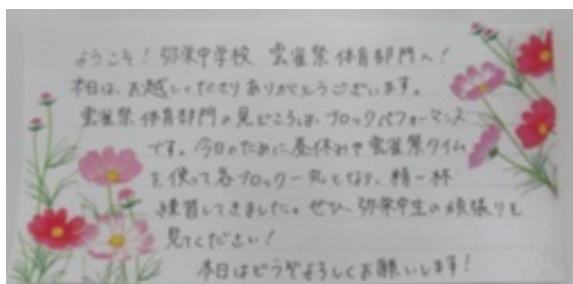 ようこそ!弥栄中学校 雲雀祭 体育部門へ!
本日は、お越しくださりありがとうございます。
雲雀祭 体育部門の見どころは、ブロックパフォーマンス
です。今日のために昼休みや雲雀祭タイム
を使って各ブロック一丸となり、精一杯
練習してきました。ぜひ、弥栄中生の頑張りを
見てください!
本日はどうぞよろしくお願いします!